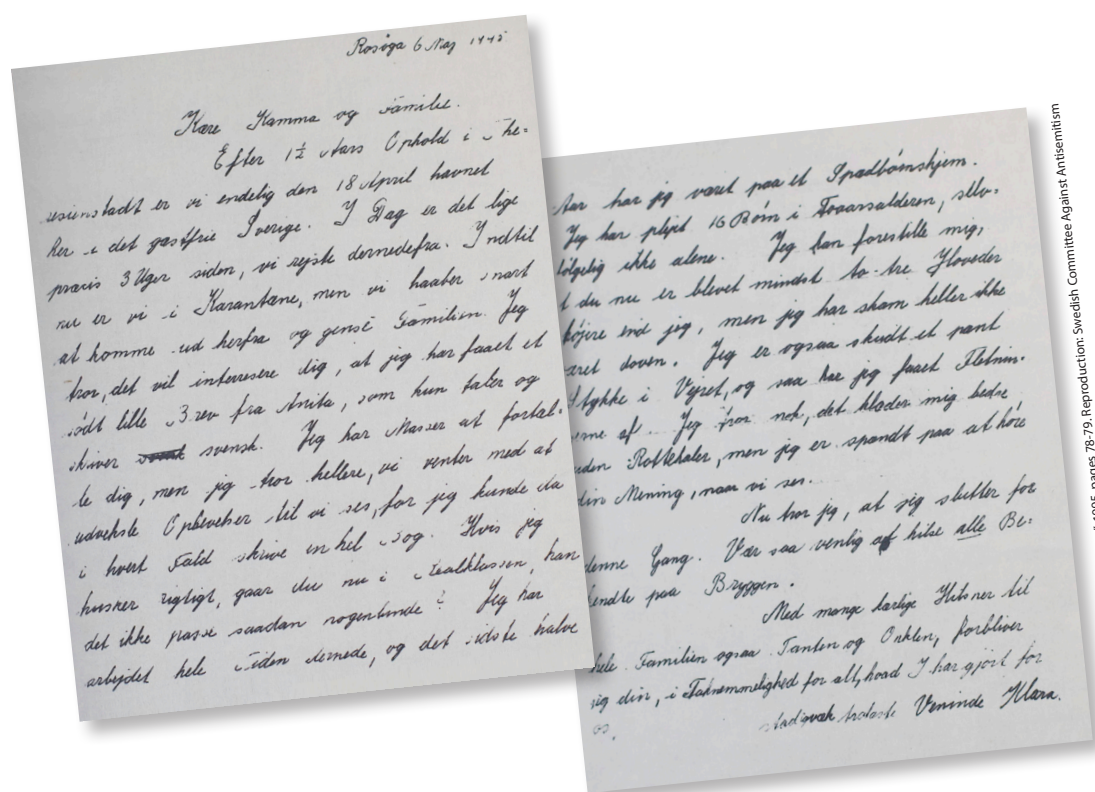 Rosöga 6 Maj 1945
Kære Kamma og Familie.
Efter 1½ Aars Ophold i The=
resienstadt er vi endelig den 18 April havnet
her i det gæstfrie Sverige. I Dag er det lige
præcis 3 Uger siden, vi rejste dernedefra. Indtil
nu er vi i Karantæne, men vi haaber snart
at komme ud herfra og gense Familien. Jeg
tror, det vil interresere dig, at jeg har faaet et
sødt lille Brev fra Anita, som hun taler og
skriver svensk. Jeg har Masser at fortæl=
le dig, men jeg tror hellere, vi venter med at
udveksle Oplevelser til vi ses, for jeg kunde da
i hvert Fald skrive en hel Bog. Hvis jeg
husker rigtigt, gaar du nu i Realklassen, kan
det ikke passe saadan nogenlunde? Jeg har
arbejdet hele Tiden dernede, og det sidste halve
Aar har jeg været paa et Spædbørnshjem.
Jeg har plejet 16 Börn i Toaarsalderen, selv=
følgelig ikke alene. Jeg kan forestille mig,
t du nu er blevet mindst to-tre Hoveder
højere end jeg, men jeg har skam heller ikke
været doven. Jeg er ogsaa skudt et pænt
Stykke i Vejret, og saa har jeg faaet Fletnin=
erne af. Jeg tror nok, det klæder mig bedre,
uden Rottehaler, men jeg er spændt paa at höre
din Mening, naar vi ses.
Nu tror jeg, at jeg slutter for
denne Gang. Vær saa venlig at hilse alle Be=
kendte paa Bryggen.
Med mange kærlige Hilsner til
hele Familien ogsaa Tanten og Onklen, forbliver
jeg din, i Taknemmelighed for alt, hvad I har gjort for
os,
stadigvæk trofaste Veninde Klara.
1995, pages 78-79. Reproduction: Swedish Committee Against Antisemitism